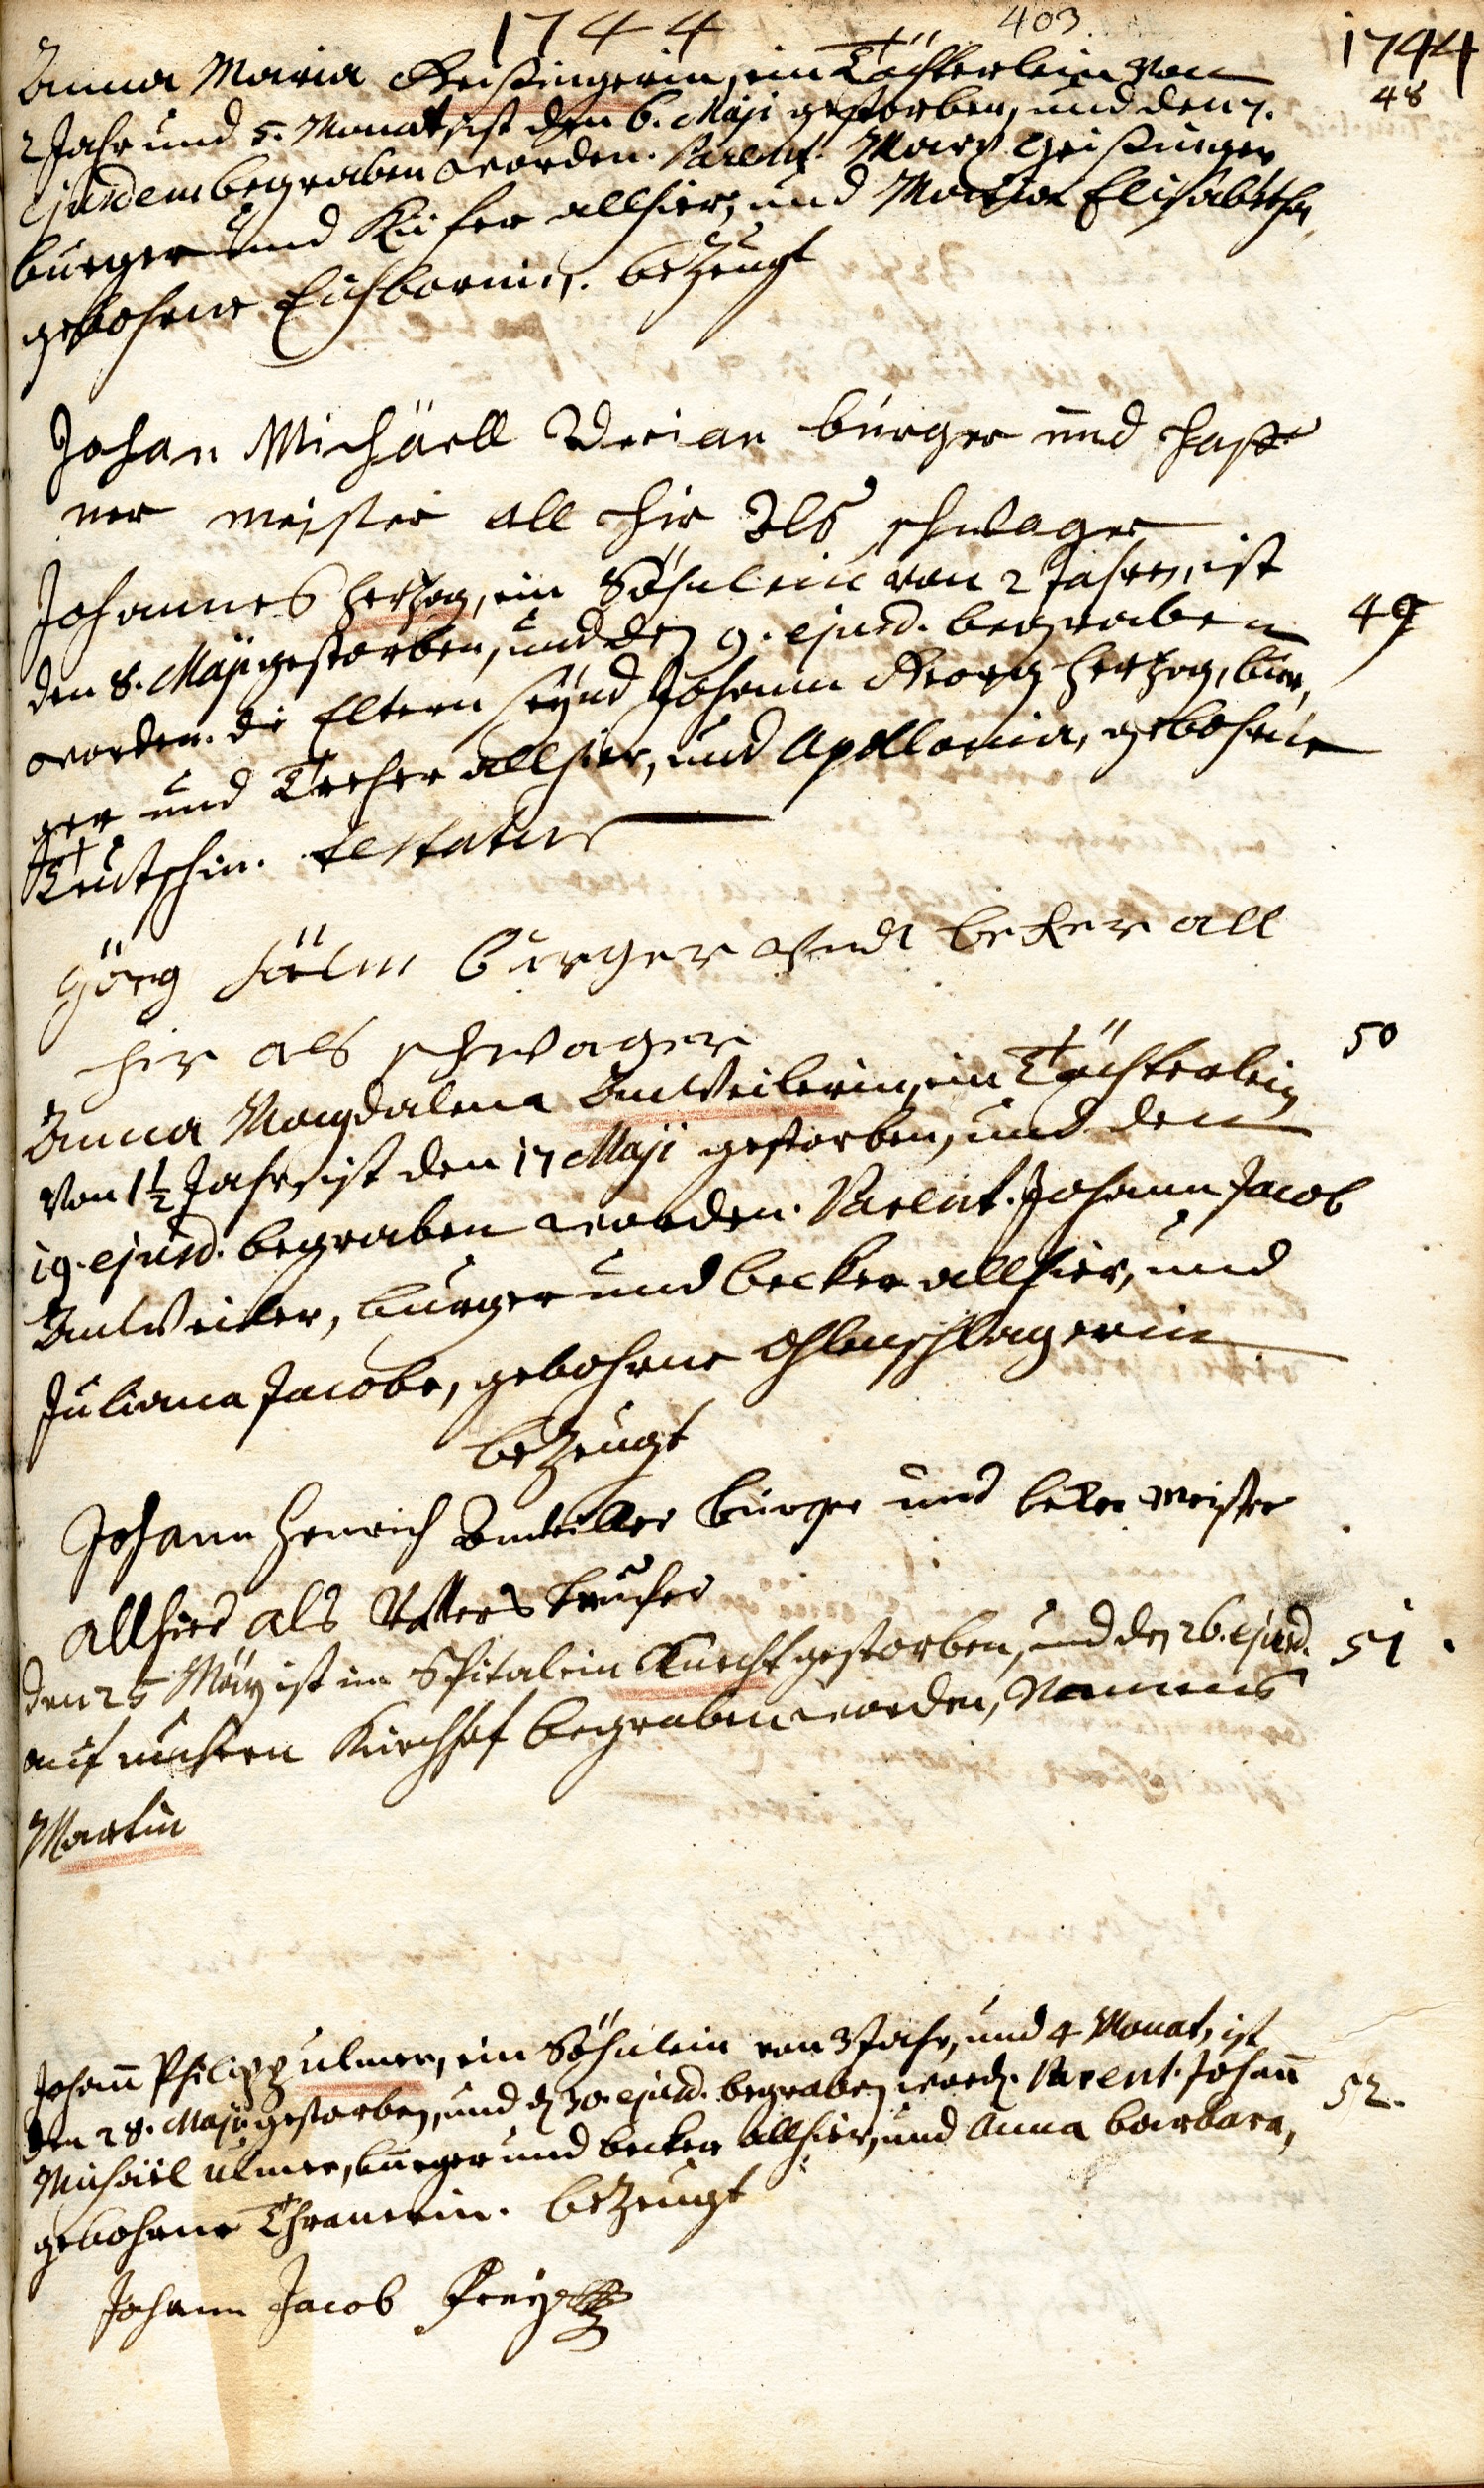 1744 403 1744
Anna Maria Geißingerin, ein Töchterlein von 48
2 Jahr und 5. Monat, ist den 6. Maji gestorben, und den 7.
ejusdem begraben worden. Parent. Marx Geißinger
burger und Kiefer allhier, und Maria Elisabetha,
gebohrne Eichbornin. bezeugt
Johan Michäell Adrian burger und haff
ner meister all hir Als schwager
Johannes Hertzog, ein Söhnlein von 2 Jahren, ist
den 8. Maji gestorben, und den 9. ejusd. begraben 49
worden. die Eltern seynd Johann Georg Hertzog, bur,
ger und Dreher allhier, und Apollonia, gebohrne
Teutschin. testatur
Görg burger undt beker all
hir als schwager
Anna Magdalena Anweilerin, ein Töchterlein 50
von 1½ Jahr, ist den 17 Maji gestorben, und den
19. ejusd. begraben worden. Parent. Johann Jacob
Anweiler, burger und becker allhier, und
Juliana Jacobe, gebohrne Ohlenschlagerin
bezeugt
Johann Henrich Anweiller burger und beker meister
allhier als Vatters bruder
den 25 May ist im Spital ein Knecht gestorben, und den 26. ejusd. 51.
auf unsern Kirchhof begraben worden, Namens
Martin
Johann Philipp Ulmer, ein Söhnlein von 3 Jahr, und 4 Monat, ist
den 28. Maji gestorben, und d. 30. ejusd. begraben word. Parent. Johann 52.
Michäel Ulmer, burger und becker allhier, und Anna barbara,
gebohrne Thranerin. bezeugt
Johann Jacob Frey